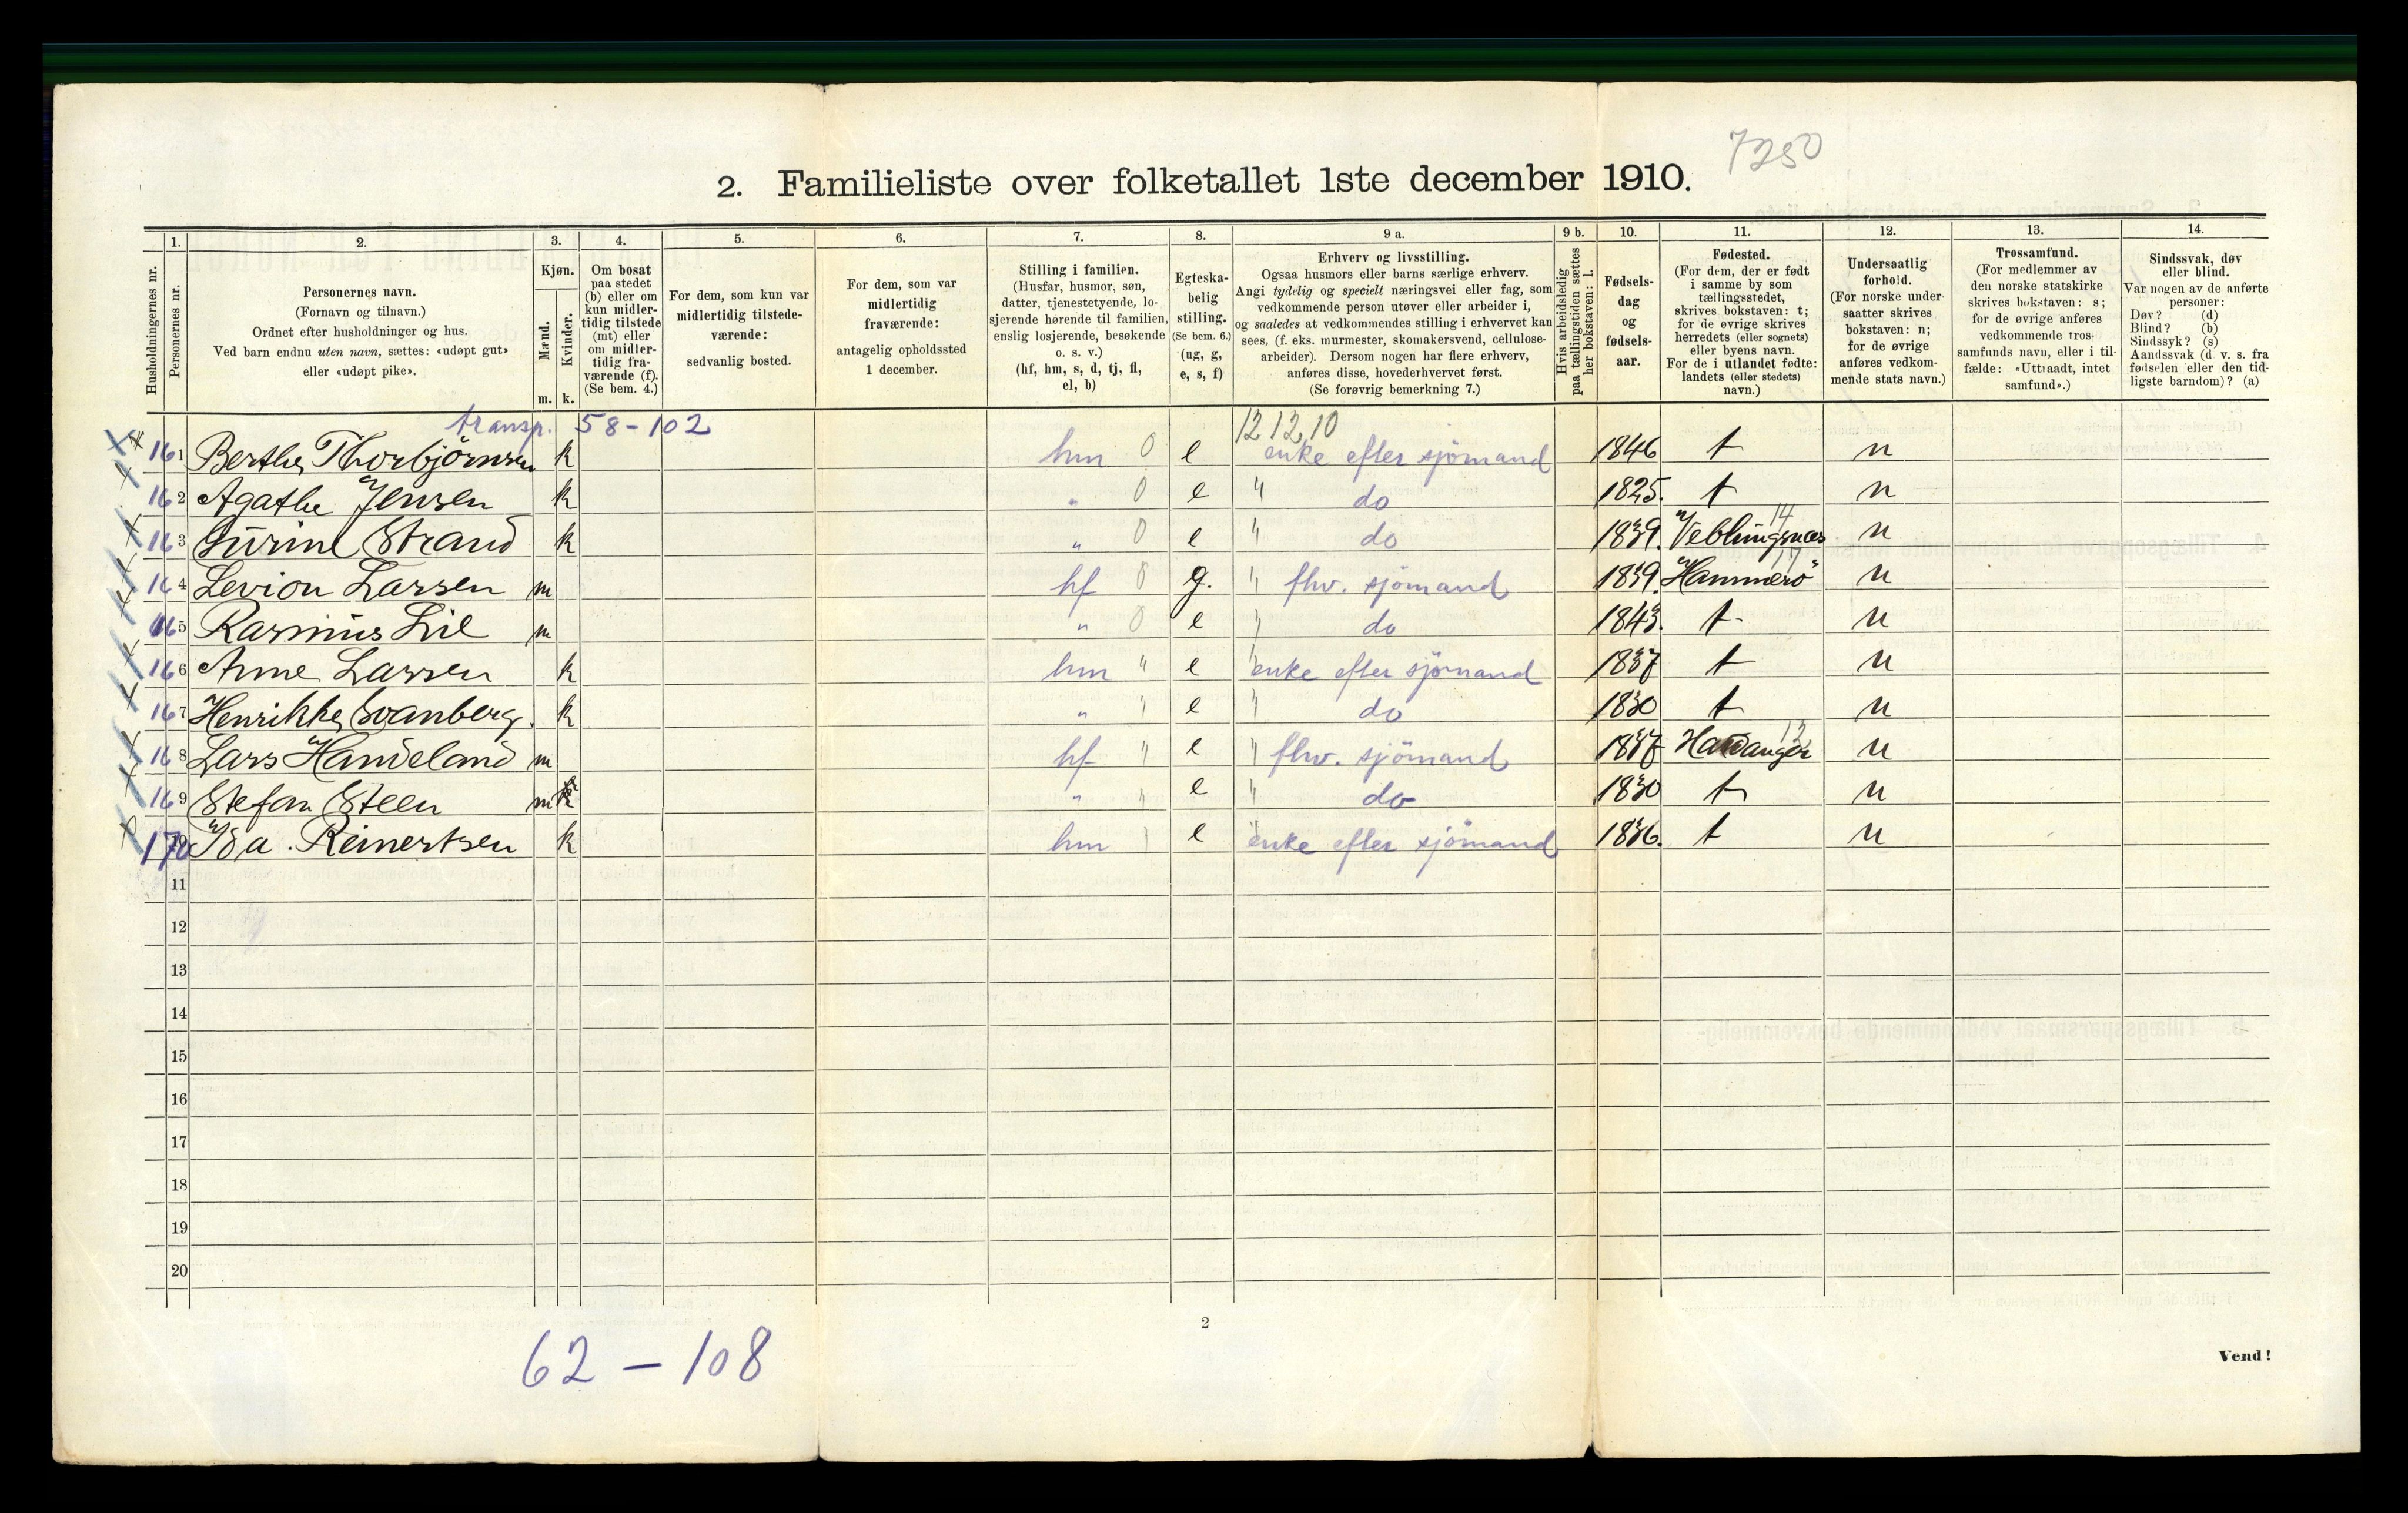 7250
2. Familieliste over folketallet 1ste december 1910.
Husholdningernes nr.
1. Personernes nr.
2. Personernes navn.
(Fornavn og tilnavn.)
Ordnet efter husholdninger og hus.
Ved barn endnu uten navn, sættes: «udøpt gut»
eller «udøpt pike».
3. Kjøn.
Mænd. Kvinder.
m. k.
4. Om bosat
paa stedet
(b) eller om
kun midler-
tidig tilstede
(mt) eller
om midler-
tidig fra-
værende (f).
(Se bem. 4.)
5. For dem, som kun var
midlertidig tilstede-
værende:
sedvanlig bosted.
6. For dem, som var
midlertidig
fraværende:
antagelig opholdssted
1 december.
7. Stilling i familien.
(Husfar, husmor, søn,
datter, tjenestetyende, lo-
sjerende hørende til familien,
enslig losjerende, besøkende
o. s. v.)
(hf, hm, s, d, tj, fl,
el, b)
8. Egteska-
belig
stilling.
(Se bem. 6.)
(ug, g,
e, s, f)
9 a. Erhverv og livsstilling.
Ogsaa husmors eller barns særlige erhverv.
Angi tydelig og specielt næringsvei eller fag, som
vedkommende person utøver eller arbeider i,
og saaledes at vedkommendes stilling i erhvervet kan
sees, (f. eks. murmester, skomakersvend, cellulose-
arbeider). Dersom nogen har flere erhverv,
anføres disse, hovederhvervet først.
(Se forøvrig bemerkning 7.)
9 b. Hvis arbeidsledig
paa tællingstiden sættes
her bokstaven: l.
10. Fødsels-
dag
og
fødsels-
aar.
11. Fødested.
(For dem, der er født
i samme by som
tællingsstedet,
skrives bokstaven: t;
for de øvrige skrives
herredets (eller sognets)
eller byens navn.
For de i utlandet fødte:
landets (eller stedets)
navn.)
12. Undersaatlig
forhold.
(For norske under-
saatter skrives
bokstaven: n;
for de øvrige
anføres vedkom-
mende stats navn.)
13. Trossamfund.
(For medlemmer av
den norske statskirke
skrives bokstaven: s;
for de øvrige anføres
vedkommende tros-
samfunds navn, eller i til-
fælde: «Uttraadt, intet
samfund».)
14. Sindssvak, døv
eller blind.
Var nogen av de anførte
personer:
Døv? (d)
Blind? (b)
Sindssyk? (s)
Aandssvak (d v. s. fra
fødselen eller den tid-
ligste barndom)? (a)
transp. 58-102 12 12 10
161 Berthe Thorbjörnsen k hm 0 e enke efter sjömand 1846 t n
162 Agathe Jensen k " 0 e " do 1825. t n
163 Strand k " 0 e " do 1839. Veblungsnæs 14 n
164 Levion Larsen m hf 0 g. " fhv. sjömand 1839. Hammerö 17 n
165 Rasmus Lie m " 0 e " do 1843. t. n
166 Anne Larsen k hm " e enke efter sjömand 1837 t n
167 Henrikke Svanberg. k " " e " do 1830 t n
168 Lars Handeland m hf " e " fhv. sjömand 1837 Hardanger 12 n
169 Stefan Steen m k " " e " do 1830 t n
170 Ida. Reinertsen k hm " e enke efter sjömand 1836. t n
11
12
13
14
15
16
17
18
19
20
62 – 108
2
Vend!